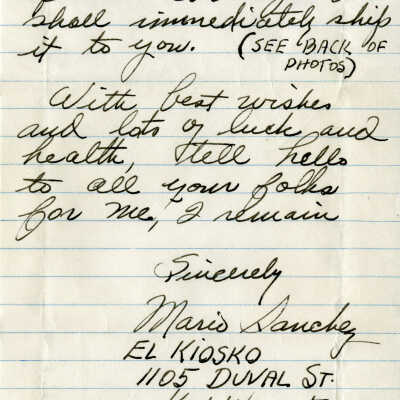 shall immediately ship
it to you. (SEE BACK OF
PHOTOS)
With best wishes
and lots of luck and
health, tell hello
to all your folks
for me, I remain
Sincerely
Mario Sanchez
EL KIOSKO
1105 DUVAL ST.